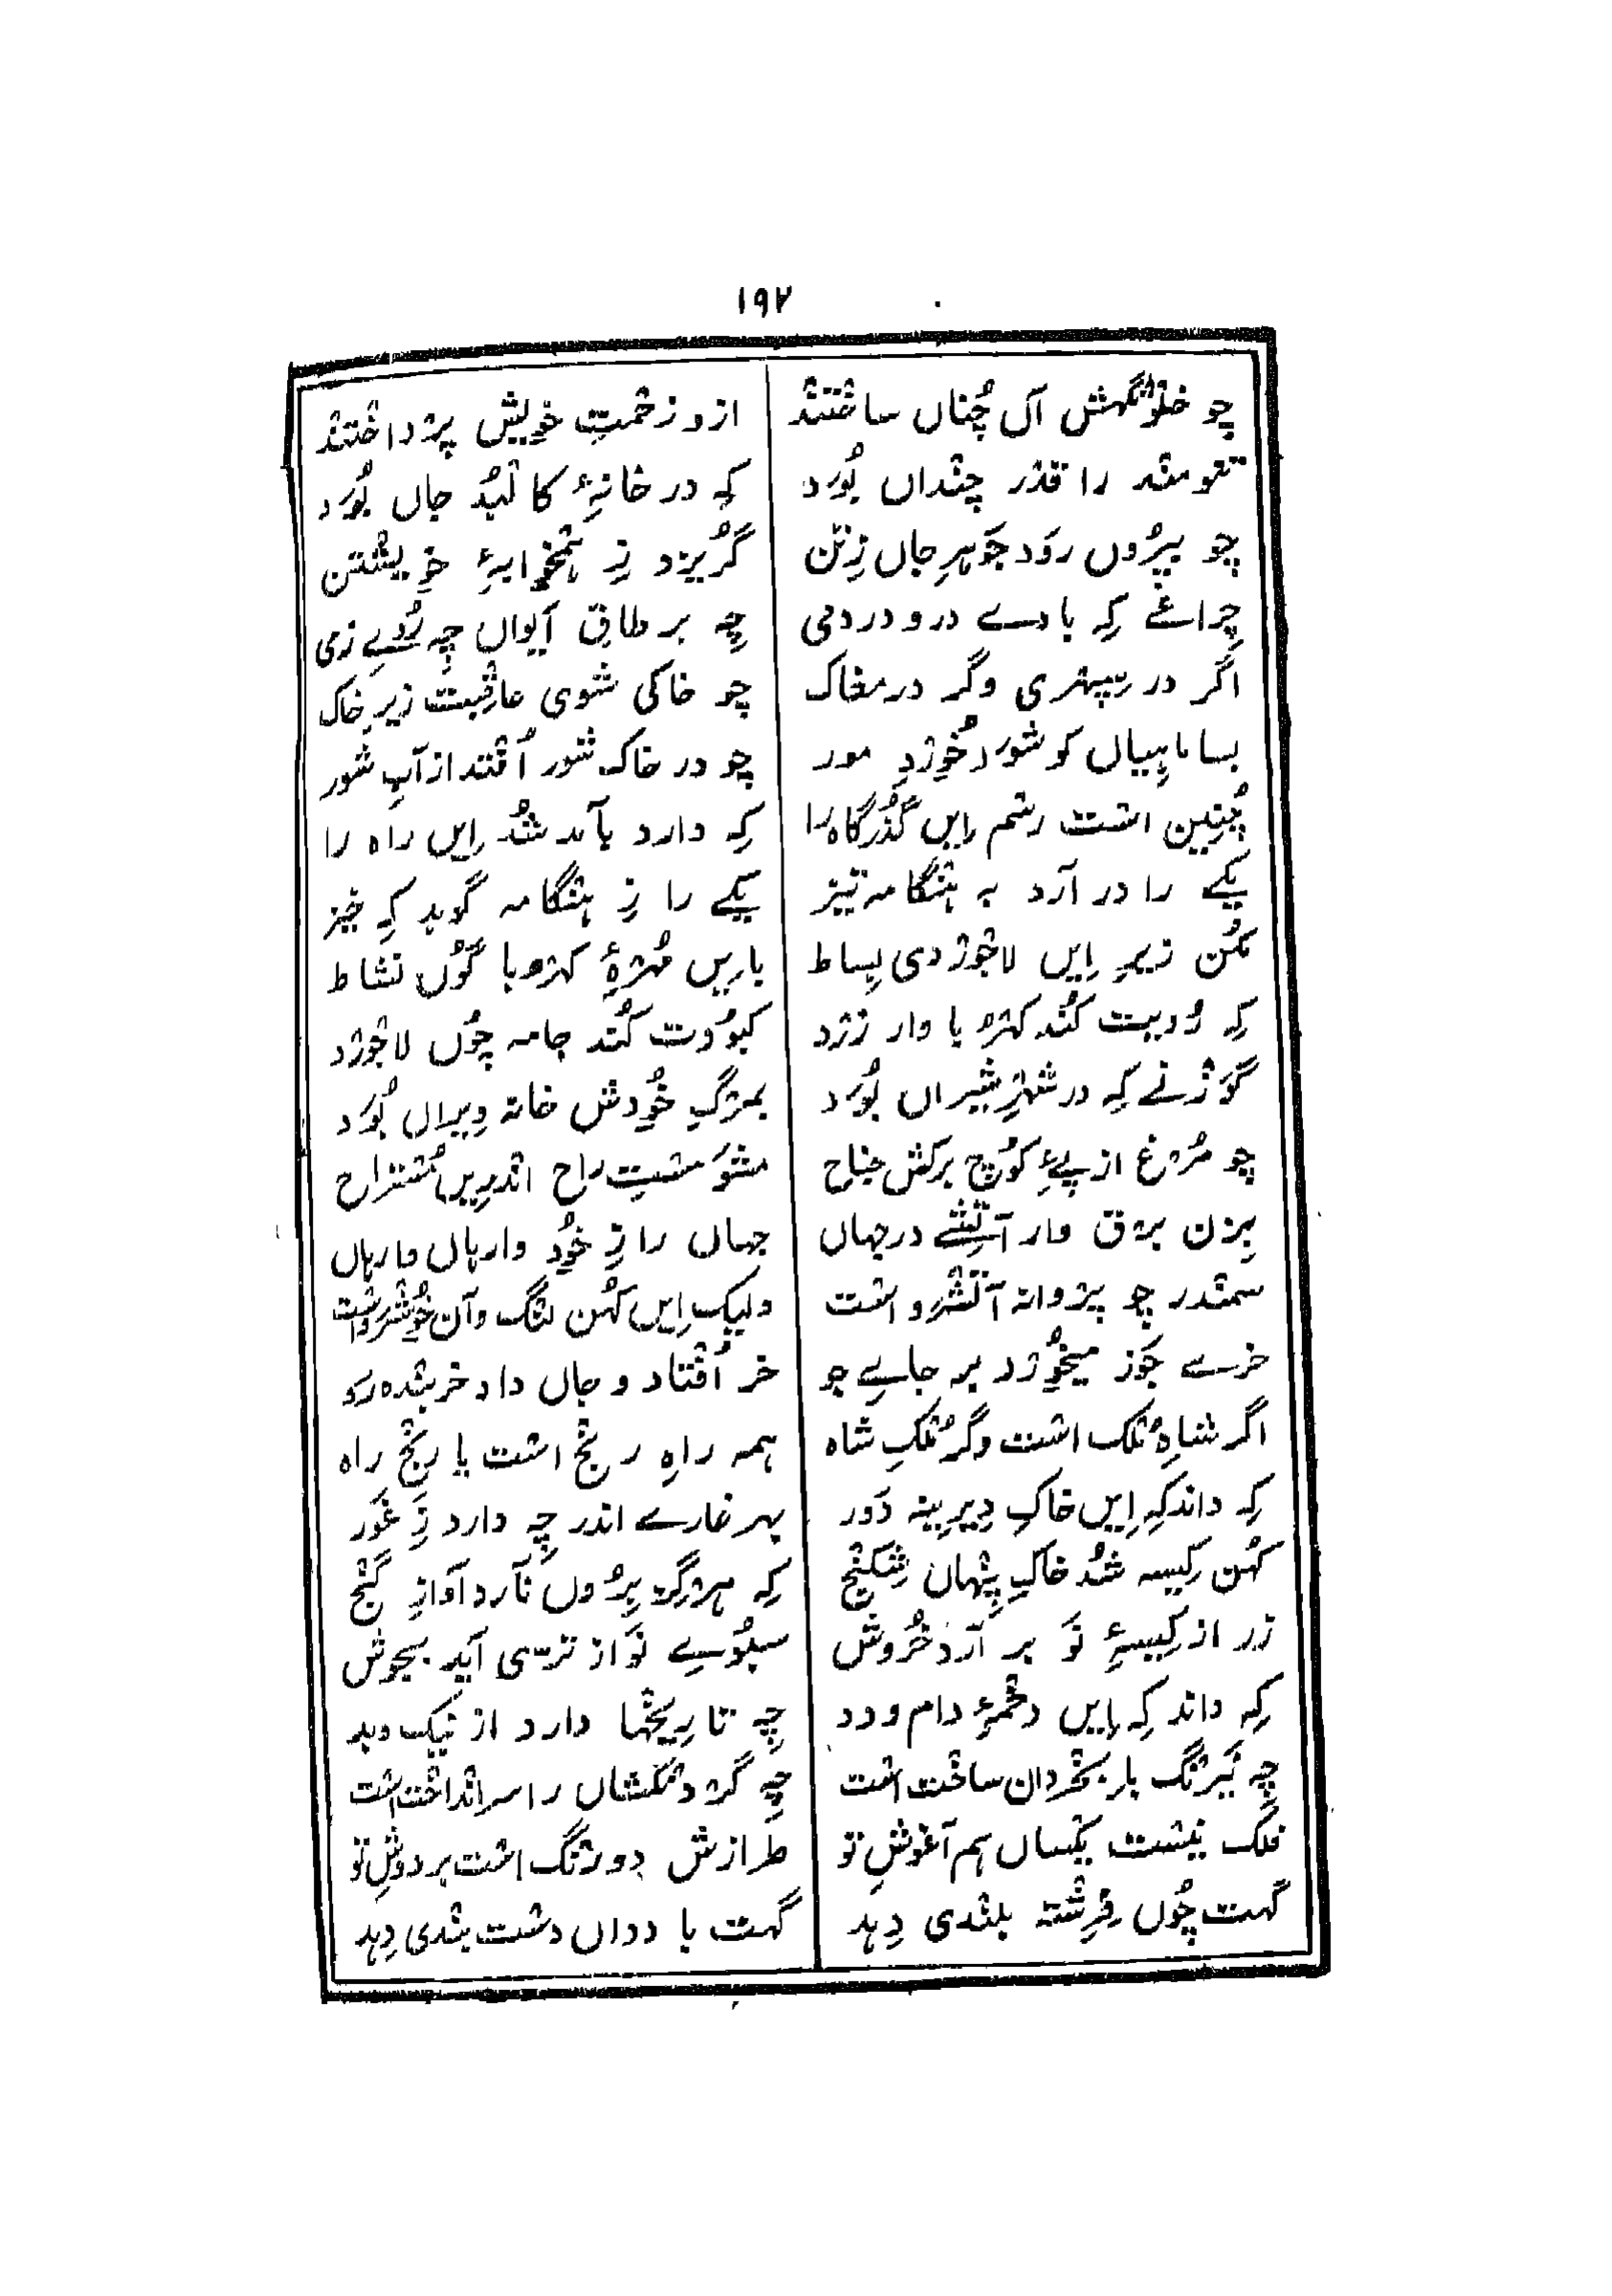 ۱۹۷
چو خلوتگهش آں چُناں ساختند ازو زحمتِ خویش پرداختند
تنومند را قدر چنداں بُوَد کِه در خانۂ کالبُد جاں بُوَد
چو بیرُوں روَد جَوہرِ جاں زِتن گُریزد زِ ہمخوابۂ خویشتن
چِراغے کِه بادے درو دردمی چِه بر طاقِ اَیواں چِه رُوۓ زمی
اگر در سِپِہری وگر در مغاک چو خاکی شوی عاقِبت زیرِ خاک
بسا ماہِیاں کو شوَد خُورْدِ مور چو در خاکِ شور اُفتد از آبِ شور
چُنِیں است رسم اِیں گُذرگاه را کِه دارد بآمد شُد اِیں راه را
یکے را در آرَد به ہنگامه تیز یکے را زِ ہنگامه گوید کِه خیز
مکُن زیرِ اِیں لاجوردی بِساط باِیں مُہرۂ کہربا گُوں نشاط
کِه رُویت کُند کہربا وار زرد کبُودت کُند جامه چُوں لاجورد
گوَزنے کِه در شہرِ شیراں بُوَد بمرگِ خُودش خانه وِیراں بُوَد
چو مُرغ از پےِ کُوچ برکش جناح مشَو مستِ راح اندرِیں مُستراح
بِزن برق وار آتِشے در جہاں جہاں را زِ خُود وارہاں وارہاں
سمندر چو پروانه آتشرو است ولیک اِیں کہُن لنگ وآن خُوشرَو است
خرے جَوز میخُورد بر جاۓ جو خر اُفتاد و جاں داد خربنده رَو
اگر شاهِ مُلک است وگر مُلکِ شاه ہمه راهِ رنج است یا رنجِ راه
کِه داند کِه اِیں خاکِ دِیرِینه دَور بہر غارے اندر چِه دارد زِ غَور
کہُن کِیسه شُد خاکِ پِنہاں شِکنج کِه ہرگز بِرُوں نآرد آوازِ گنج
زر از کِیسۂ نَو بر آرَد خُروش سبُوۓ نَو از ترّی آید بجوش
کِه داند کِه اِیں دخمۂ دام و دد چِه تارِیخہا دارد از نیک و بد
چِه نَیرنگ با بخردان ساخت است چِه گردنکشاں را سر انداخت است
فلک نِیست یکساں ہم آغوشِ تو طرازش دو رنگ است بر دوشِ تو
گہت چُوں فِرِشته بلندی دِہد گہت با دداں دست بندی دِہد